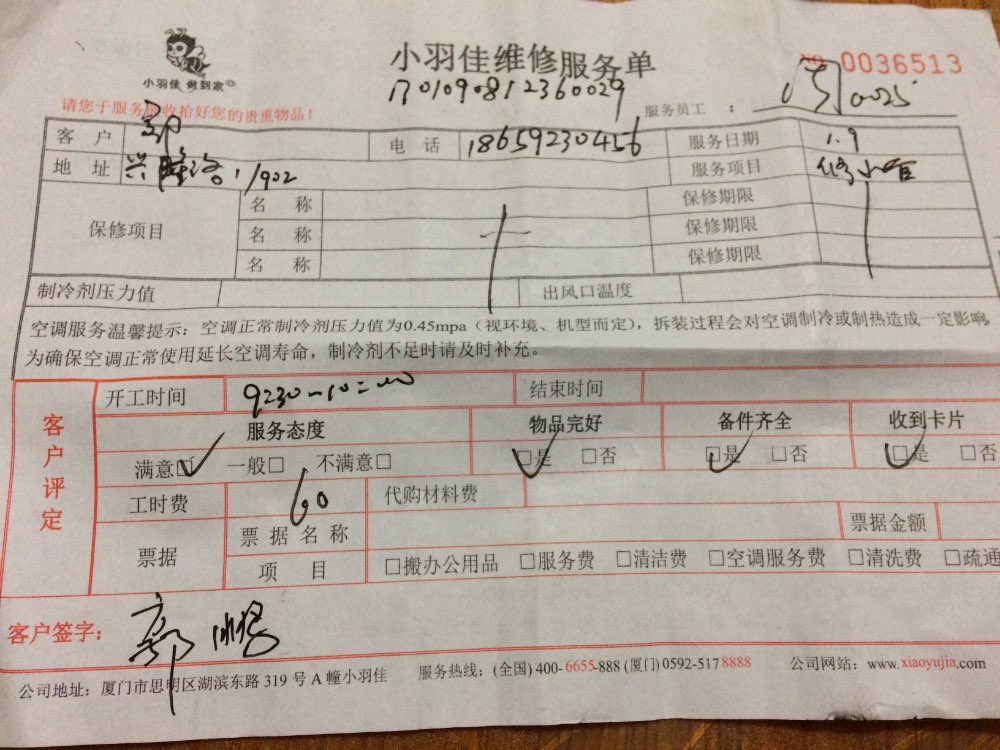 小羽佳 做到家
小羽佳维修服务单
NO 0036513
1701090812360029
请您于服务前收拾好您的贵重物品！
服务员工： 0025
客户 郭 电话 18659230456 服务日期 1.9
地址 兴隆路 1902 服务项目 修水管
保修项目 名称 保修期限
名称 保修期限
名称 保修期限
制冷剂压力值 出风口温度
空调服务温馨提示：空调正常制冷剂压力值为0.45mpa（视环境、机型而定），拆装过程会对空调制冷或制热造成一定影响，
为确保空调正常使用延长空调寿命，制冷剂不足时请及时补充。
客户评定
开工时间 9:30-10:00 结束时间
服务态度 物品完好 备件齐全 收到卡片
满意□ 一般□ 不满意□ □是 □否 □是 □否 □是 □否
工时费 60 代购材料费
票据 票据名称 票据金额
项目 □搬办公用品 □服务费 □清洁费 □空调服务费 □清洗费 □疏通
客户签字： 郭
公司地址：厦门市思明区湖滨东路 319 号 A 幢小羽佳 服务热线：(全国) 400-6655-888 (厦门) 0592-517 8888 公司网站：www.xiaoyujia.com